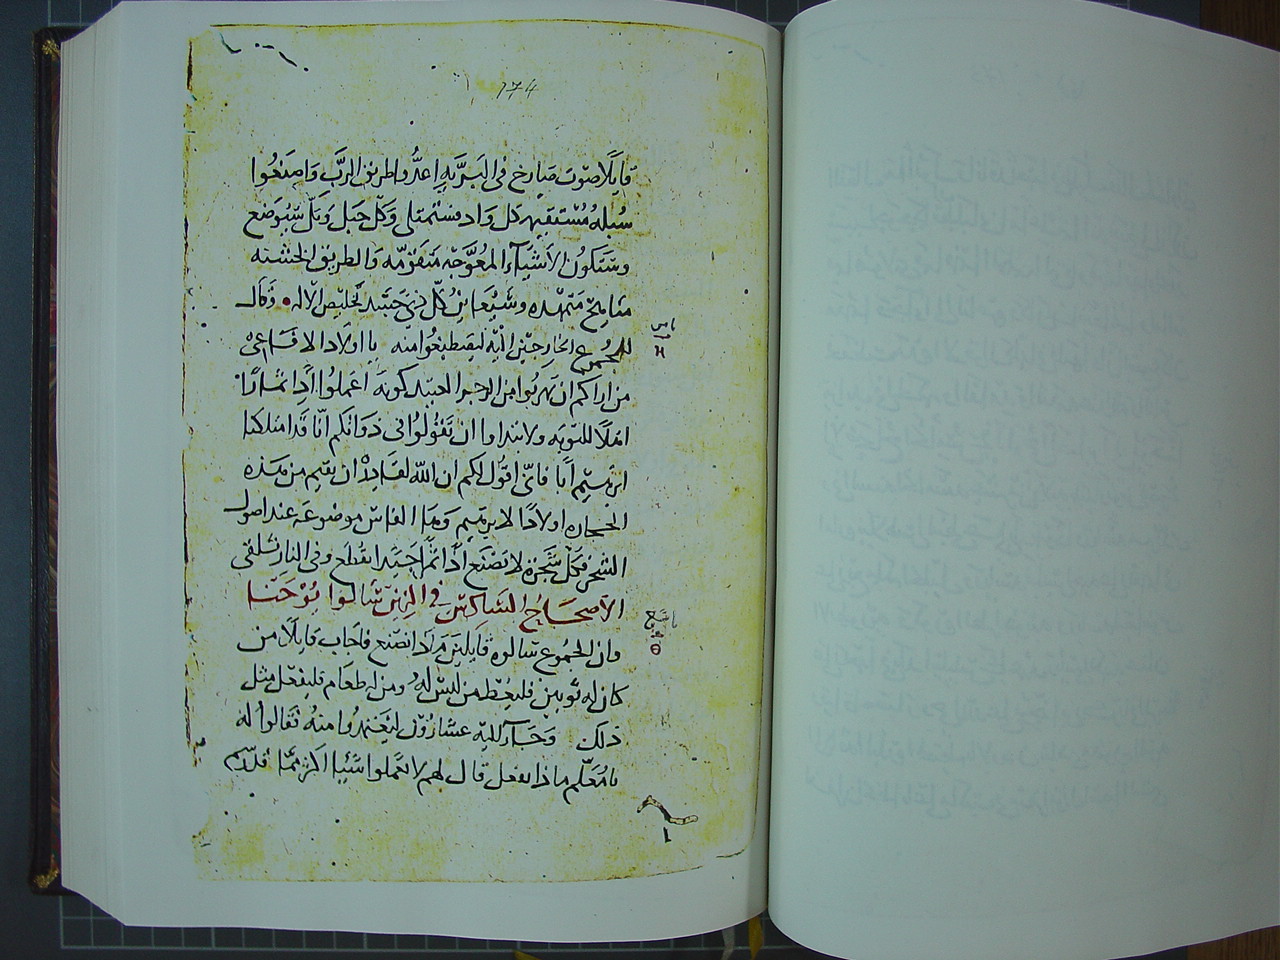 174
قايلا صوت صارخ في البريه اعدوا طريق الرب واصنعوا
سبله مستقيمه كل واد فستمتلي وكل جبل وتل سيوضع
وستكون الاشياء المعوجه متقومه والطريق الخشنه
متمهده وسيعاين كل ذي جسد تخليص الاله • وقال
للجموع الخارجين اليه ليصطبغوا منه يا اولاد الافاعي
من اراكم ان تهربوا من الرجز اعملوا اذا ثمارا
اهلا للتوبه ولا تبتدوا ان تقولوا في ذواتكم انا قد امتلكنا
ابرهيم ابا فاني اقول لكم ان الله لقادر ان يقيم من هذه
الحجاره اولادا لابرهيم وها الفاس موضوعه عند اصول
الشجر فكل شجره لا تصنع اذا ثمرا جيدا تقطع وفي النار تلقي
الاصحاح السادس في الذين سالوا يوحنا
وان الجموع سالوه قايلين ماذا نصنع فاجاب قايلا من
كان له ثوبين فليعط من ليس له ومن له طعام فليفعل مثل
ذلك وجاء اليه عشارون ليعتمدوا منه فقالوا له
يا معلم ماذا نفعل قال لهم لا تعملوا شيا اكثر مما